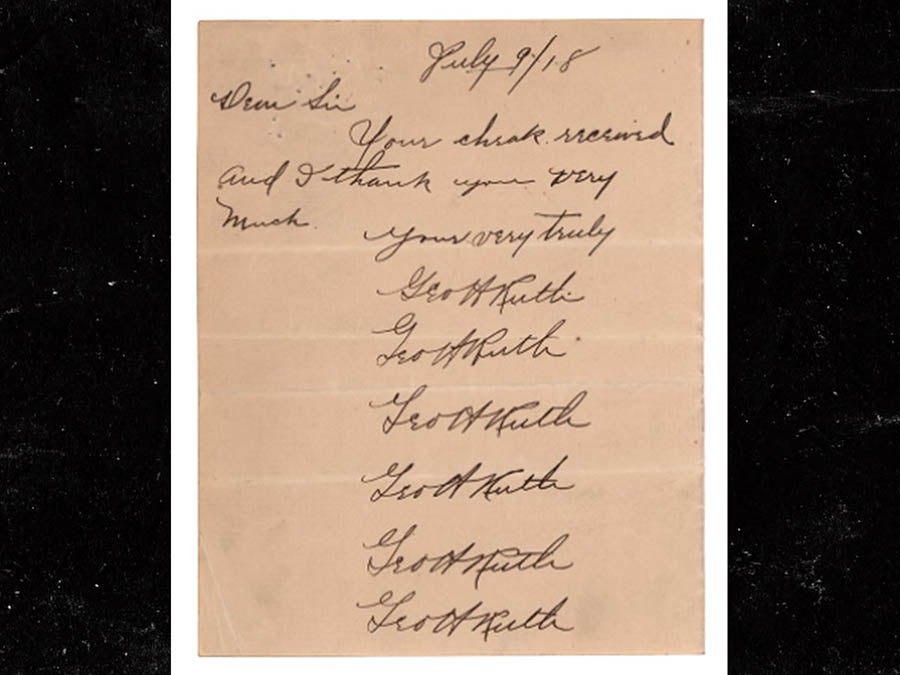 July 9/18
Dear Sir
Your cheak received
and I thank you very
much.
Your very truly
Geo H Ruth
Geo H Ruth
Geo H Ruth
Geo H Ruth
Geo H Ruth
Geo H Ruth